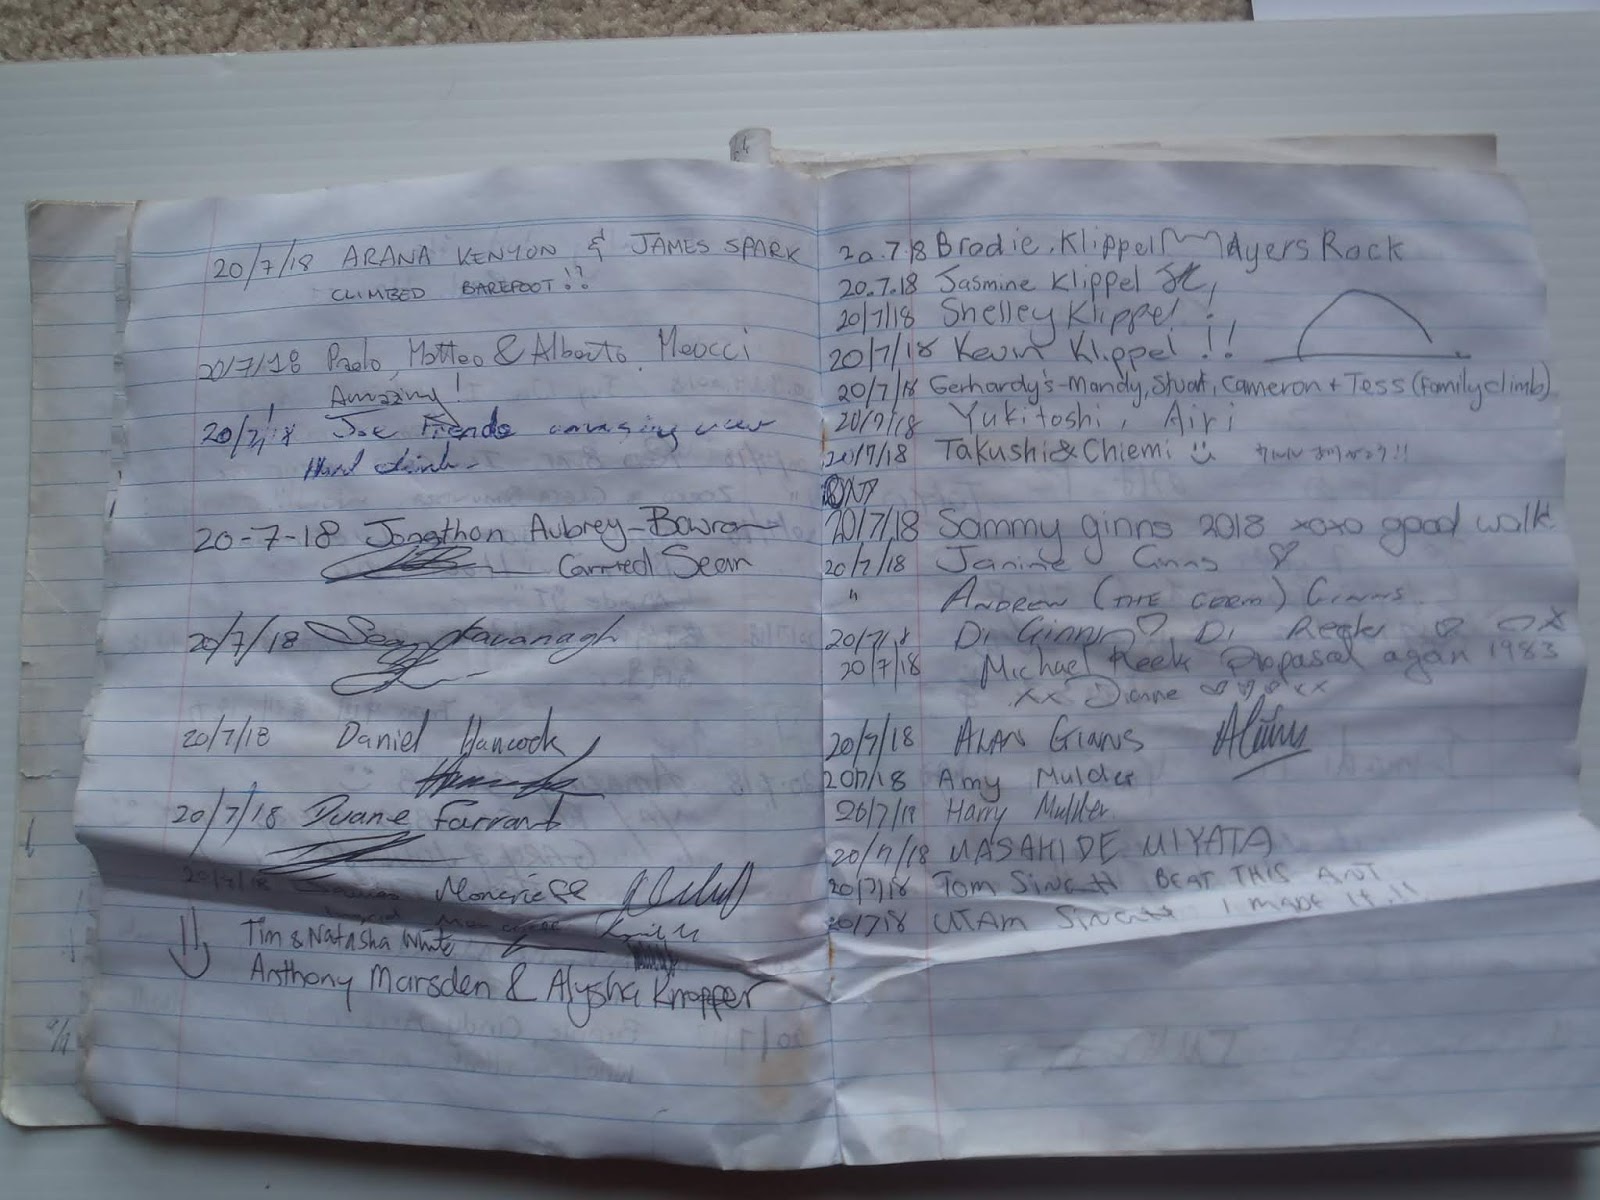 20/7/18 ARANA KENYON & JAMES SPARK
CLIMBED BAREFOOT!!
20/7/18 Paolo, Matteo & Alberto Meocci
Amazing!
20/7/18 Joe amazing view
Hard climb
20-7-18 Jonathon Aubrey-Bowron
Carried Sean
20/7/18 Sean Kavanagh
20/7/18 Daniel Hancock
20/7/18 Duane Farrant
Moncrieff
Tim & Natasha White
Anthony Marsden & Alysha Knopper
20.7.18 Brodie Klippel Ayers Rock
20.7.18 Jasmine Klippel JK
20/7/18 Shelley Klippel
20/7/18 Kevin Klippel !!
20/7/18 Gerhardy's-Mandy, Stuart, Cameron + Tess (family climb)
20/7/18 Yukitoshi, Airi
20/7/18 Takushi & Chiemi
20/7/18 Sammy ginns 2018 xoxo good walk
20/7/18 Janine Ginns ♡
" ANDREW (THE GERM) GINNS
20/7/18 Di Ginns ♡ Di Reek ♡ X
20/7/18 Michael Reek Proposal again 1983
xx Dianne ♡♡♡xx
20/7/18 ALAN GINNS
20/7/18 Amy Mulder
20/7/18 Harry Mulder
20/7/18 MASAHIDE MIYATA
20/7/18 TOM BEAT THIS ANT
20/7/18 I MADE IT!!